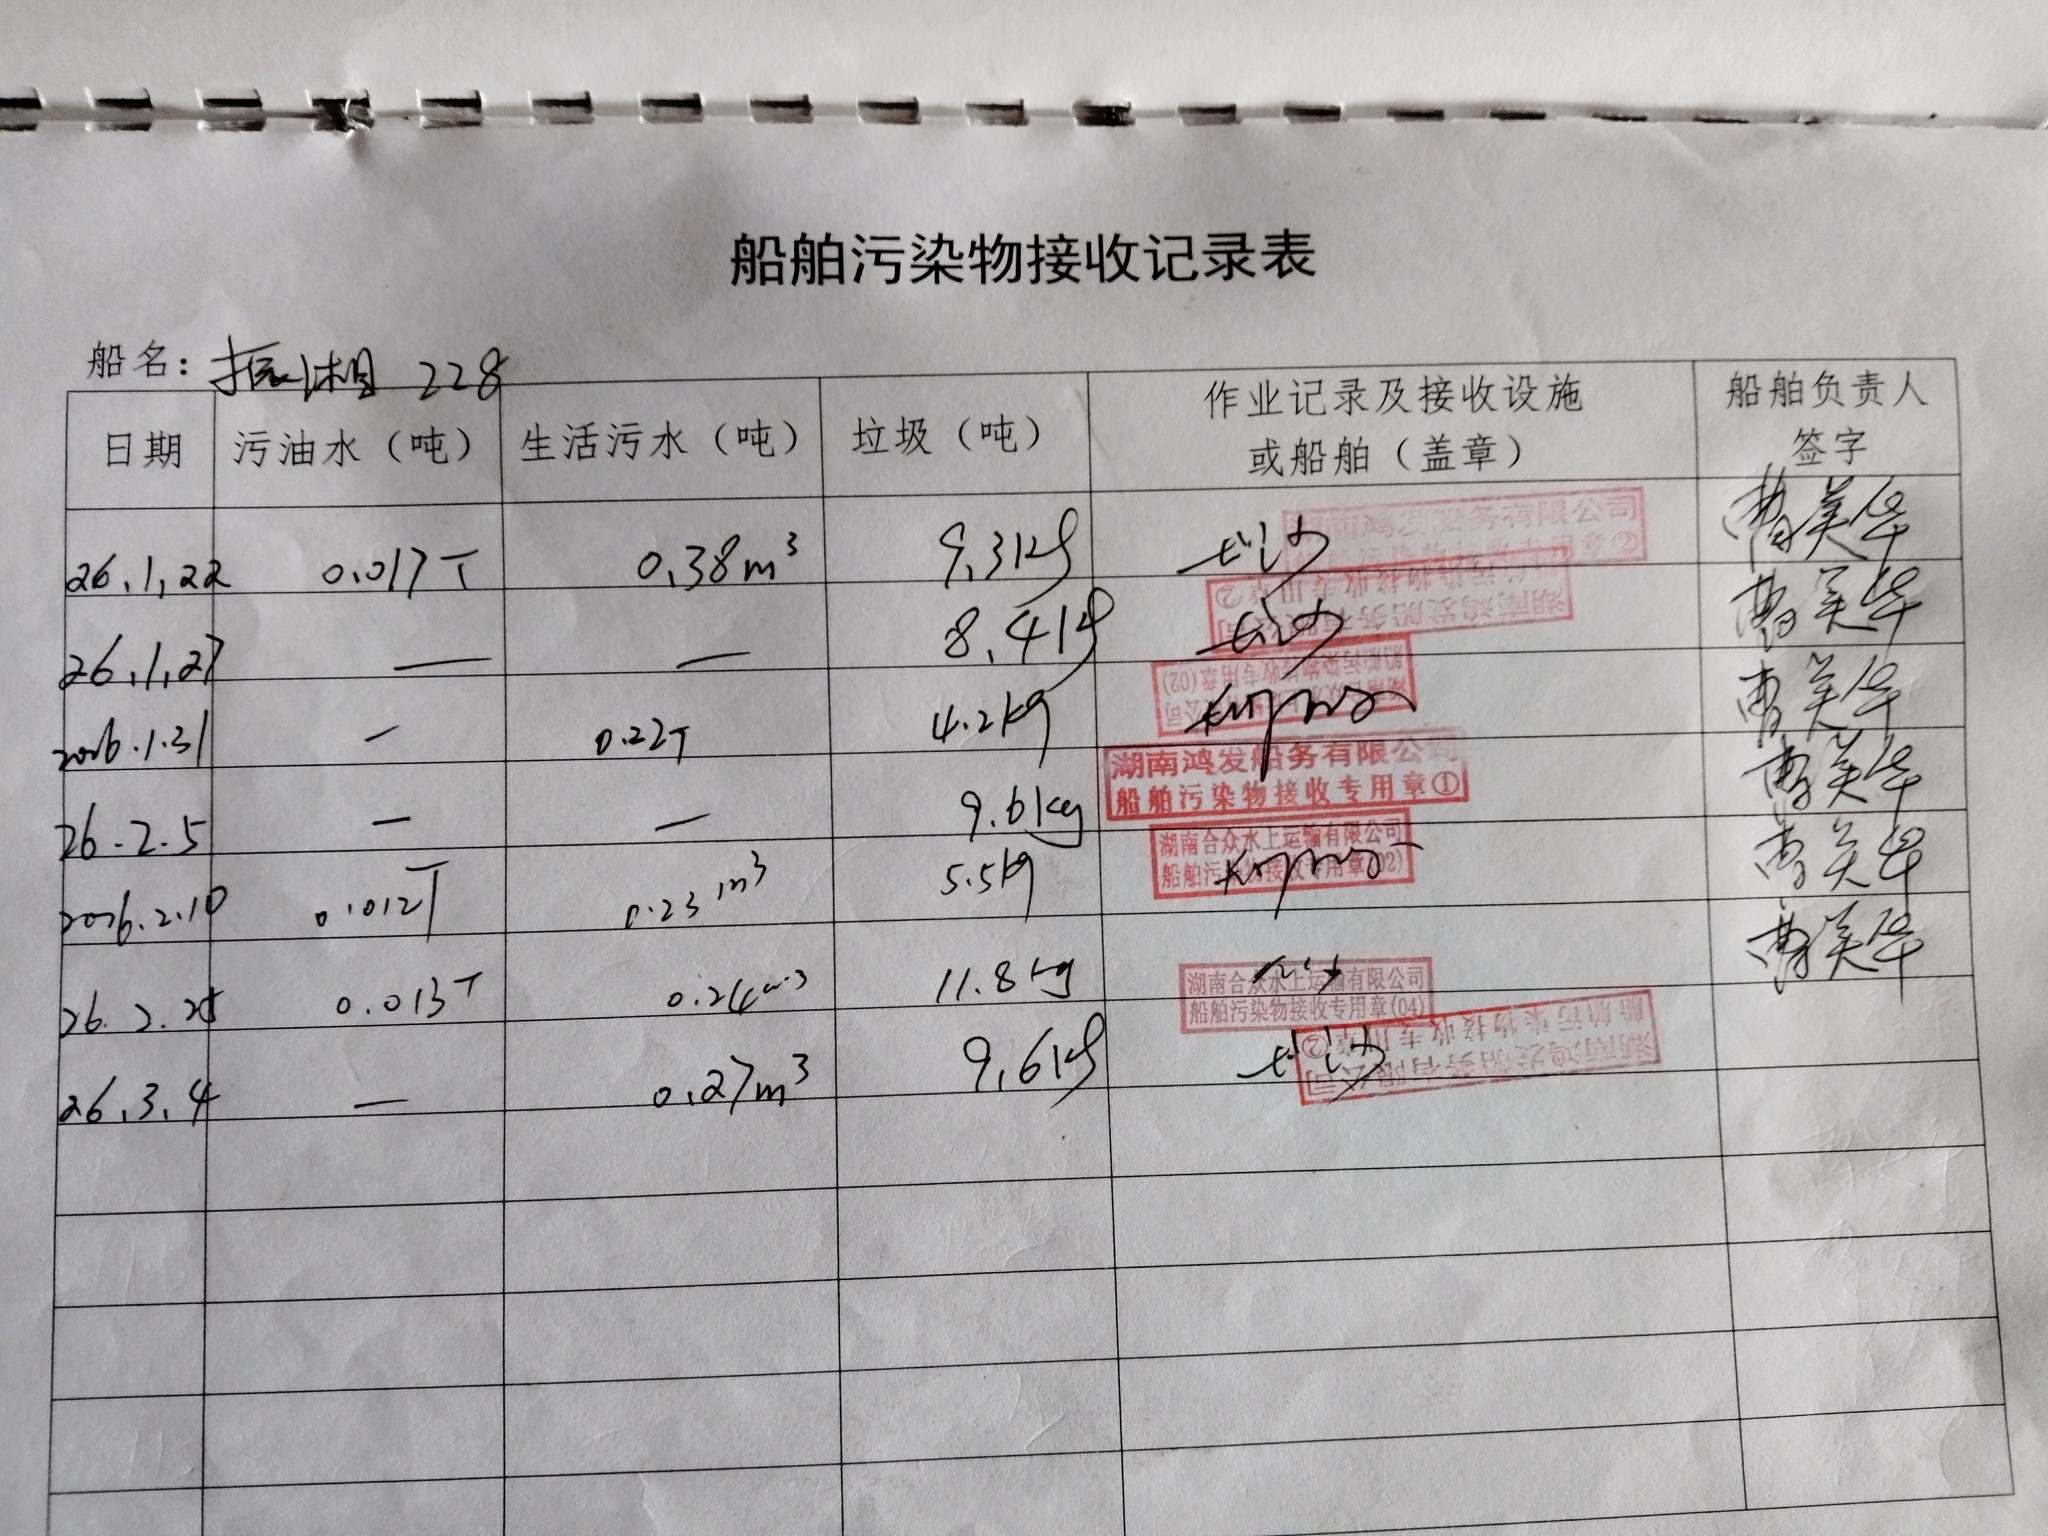 船舶污染物接收记录表
船名：振湘 228
日期 污油水（吨） 生活污水（吨） 垃圾（吨） 作业记录及接收设施或船舶（盖章） 船舶负责人签字
26.1.22 0.017T 0.38m³ 9.3kg 长沙 曹美华
船务有限公司
26.1.27 — — 8.4kg 长沙 曹美华
湖南鸿发船务有限公司
船舶污染物接收专用章②
2026.1.31 — 0.22T 4.2kg 曹美华
船舶污染物接收专用章(02)
26.2.5 — — 9.6kg 曹美华
湖南鸿发船务有限公司
船舶污染物接收专用章①
2026.2.10 0.012T 0.23m³ 5.5kg 曹美华
湖南合众水上运输有限公司
船舶污染物接收专用章(02)
26.2.25 0.013T 0.24m³ 11.8kg 长沙 曹美华
湖南合众水上运输有限公司
船舶污染物接收专用章(04)
26.3.4 — 0.27m³ 9.6kg 长沙
湖南鸿发船务有限公司
船舶污染物接收专用章②